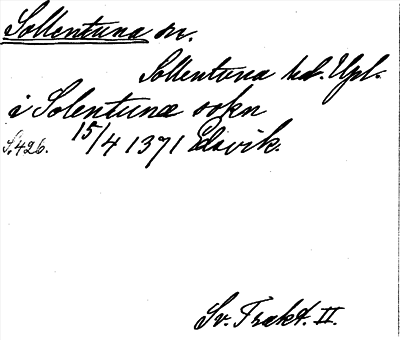 Sollentuna sn.
Sollentuna hd. Upl.
i Solentuna sokn
S. 426. 15/4 1371 Edsvik.
Sv. Trakt. II.